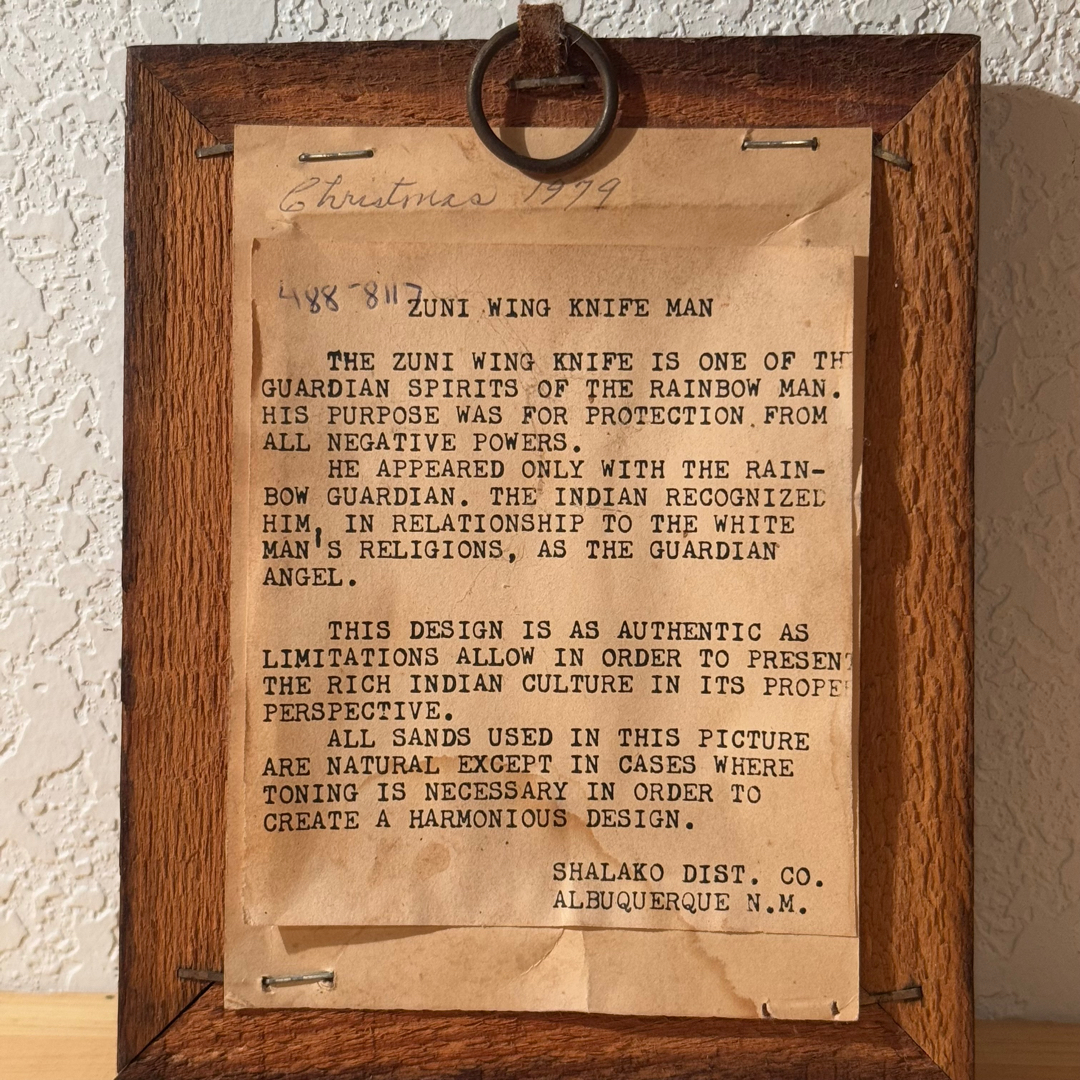 Christmas 1979
488-8117
ZUNI WING KNIFE MAN
THE ZUNI WING KNIFE IS ONE OF TH
GUARDIAN SPIRITS OF THE RAINBOW MAN.
HIS PURPOSE WAS FOR PROTECTION FROM
ALL NEGATIVE POWERS.
HE APPEARED ONLY WITH THE RAIN-
BOW GUARDIAN. THE INDIAN RECOGNIZED
HIM, IN RELATIONSHIP TO THE WHITE
MAN'S RELIGIONS, AS THE GUARDIAN
ANGEL.
THIS DESIGN IS AS AUTHENTIC AS
LIMITATIONS ALLOW IN ORDER TO PRESENT
THE RICH INDIAN CULTURE IN ITS PROPE
PERSPECTIVE.
ALL SANDS USED IN THIS PICTURE
ARE NATURAL EXCEPT IN CASES WHERE
TONING IS NECESSARY IN ORDER TO
CREATE A HARMONIOUS DESIGN.
SHALAKO DIST. CO.
ALBUQUERQUE N.M.